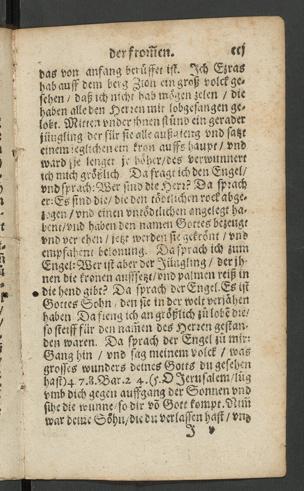 der from̃en. ccj
das von anfang berüffet ist. Ich Ezras
hab auff dem berg Zion ein groß volck ge-
sehen / daß ich nicht hab mögen zelen / die
haben alle den Herren mir lobgesangen ge-
lobt. Mitten vnder ihnen stůnd ein gerader
jüngling der für sie alle außgieng vnd satzt
einem jeglichen ein kron auffs haupt / vnd
ward sie lenger je höher / des verwunnert
ich mich größlich. Da fragt ich den Engel /
vnd sprach: Wer sind die Herr? Da sprach
er: Es sind die / die den tödtlichen rock abge-
zogen / vnd einen vntödtlichen angelegt ha-
ben: vnd haben den namen Gottes bezeugt
vnd ver ehen / jetz werden sie gekrönt / vnd
empfahent belonung. Da sprach ich zum
Engel: Wer ist aber der Jüngling / der jh-
nen die kronen auffsetzt / vnd palmen reiß in
die hend gibt? Da sprach der Engel. Es ist
Gottes Sohn / den sie in der welt verjähen
haben. Da fieng ich an größlich zů lobẽ die /
so steiff für den nam̃en des Herren gestan-
den waren. Da sprach der Engel zů mir:
Gang hin / vnd sag meinem volck / was
grosses wunders deines Gotts du gesehen
hast) 4. 7. 8. Bar. 2 4. (5. O Jerusalem / lůg
vmb dich gegen auffgang der Sonnen vnd
sihe die wunne / so dir võ Gott kompt. Nim̃
war deine Söhn / die du verlassen hast / vnd